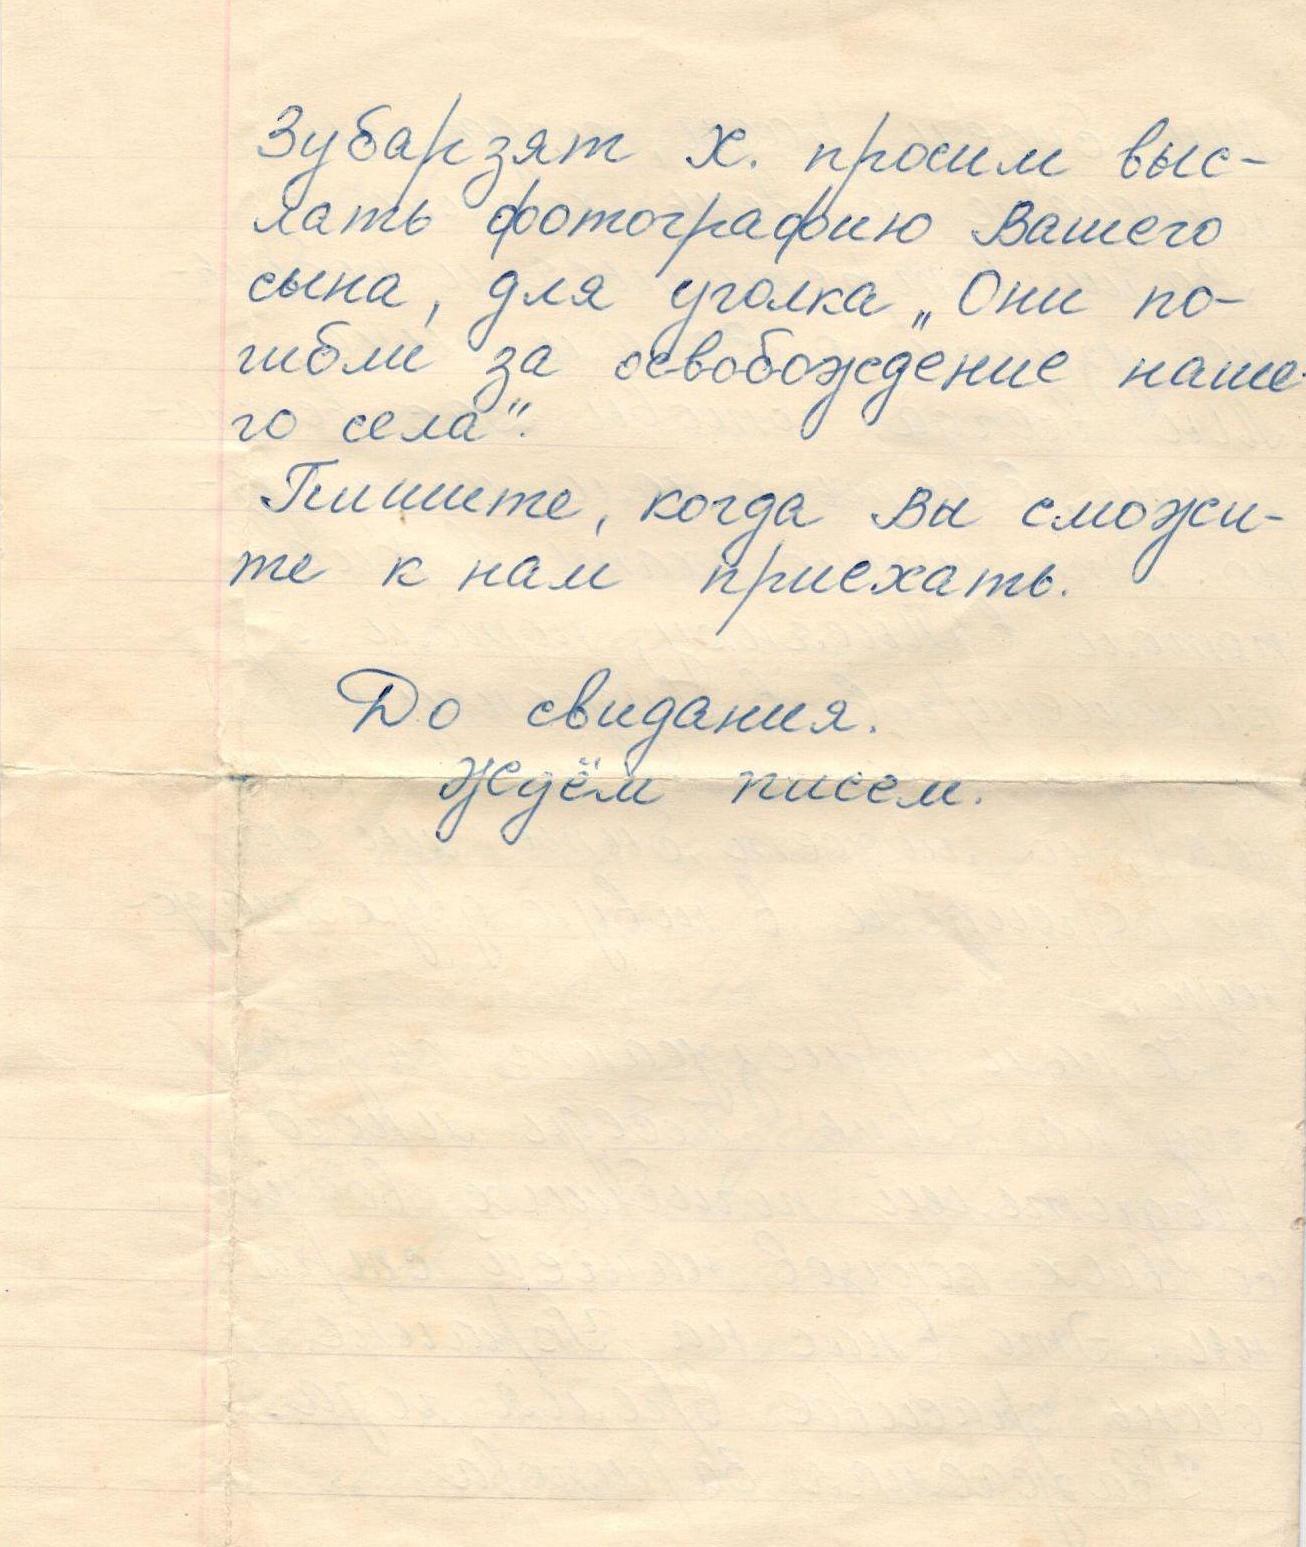 Зубарзят Х. просим выс-
лать фотографию Вашего
сына, для уголка „Они по-
гибли за освобождение наше-
го села".
Пишите, когда Вы сможи-
те к нам приехать.
До свидания.
Ждём писем.